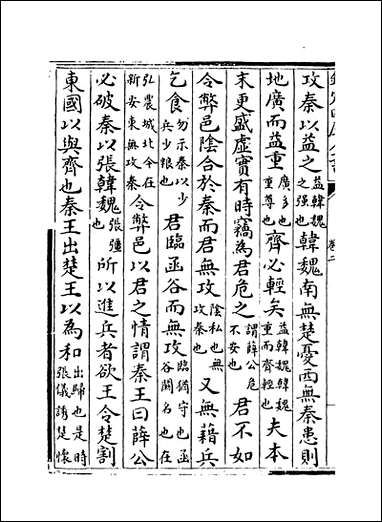 卷二
攻秦以益之益韓魏之强也韓魏南無楚憂西無秦患則
地廣而益重廣多也重尊也齊必輕矣益韓魏韓魏重而齊輕也夫本
末更盛虚實有時竊為君危之謂薛公危不安也君不如
令弊邑陰合於秦而君無攻陰私也無攻秦也又無藉兵
乞食勿示秦以少兵少粮也君臨函谷而無攻臨猶守也函谷關名也在
弘農城北今在新安東無攻秦令弊邑以君之情謂秦王曰薛公
必破秦以張韓魏張彊也所以進兵者欲王令楚割
東國以與齊也秦王出楚王以為和出歸也是時張儀誘楚懷